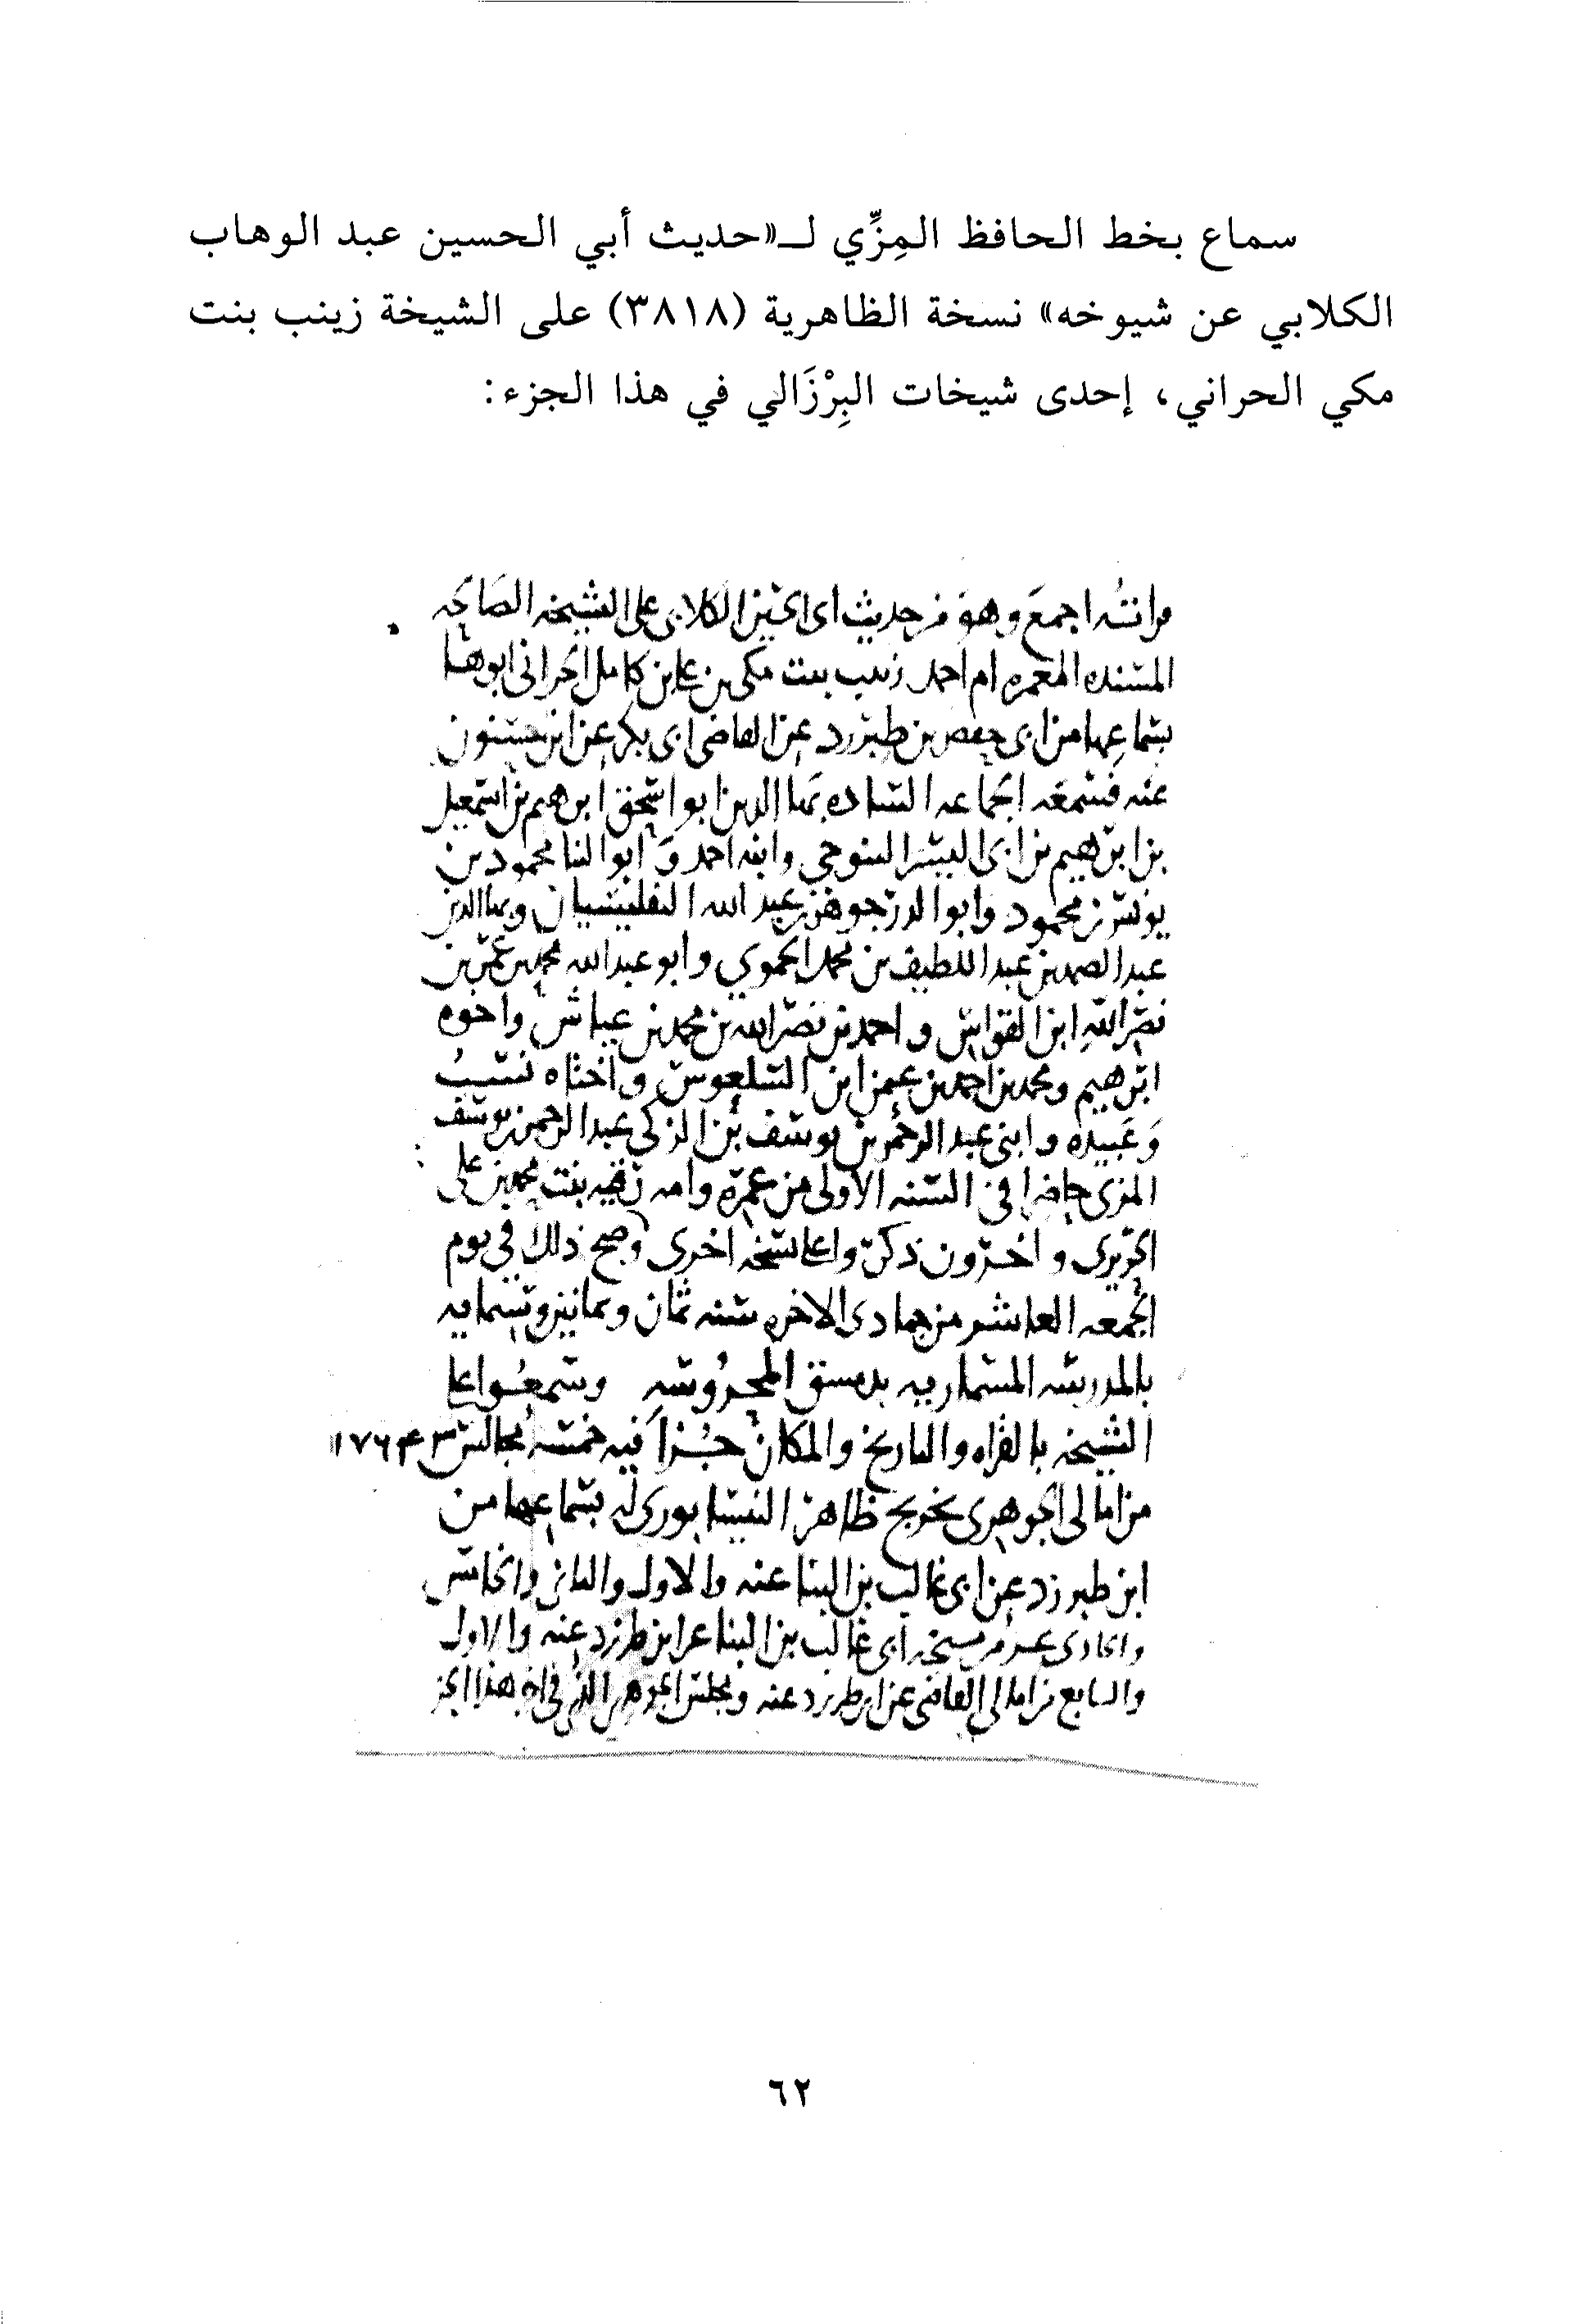 سماع بخط الحافظ المِزِّي لـ«حديث أبي الحسين عبد الوهاب
الكلابي عن شيوخه» نسخة الظاهرية (٣٨١٨) على الشيخة زينب بنت
مكي الحراني، إحدى شيخات البِرْزَالي في هذا الجزء:
اجمع وهو من حديث ابى الحسين الكلابي على الشيخه الصالحه
المسنده المعمره ام احمد زينب بنت مكى بن على بن كامل الحرانى ابوها
بسماعها من ابى حفص بن طبرزد عن القاضى ابى بكر عن ابن حسنون
عنه فسمعه الجماعه الساده بها الدين ابو اسحق ابرهيم بن اسمعيل
بن ابرهيم بن ابى اليسر التنوخي وابنه احمد وابو الثنا محمود بن
يونس بن محمود وابو الدر جوهر بن عبد الله التفليسيان وبها الدين
عبد الصمد بن عبد اللطيف بن محمد الحموي وابو عبد الله محمد بن عمر بن
نصر الله ابن القواس واحمد بن نصر الله بن محمد بن عياش واخوه
ابرهيم ومحمد بن احمد بن عثمن ابن السلعوس واختاه نسب
وعبيده وابنى عبد الرحمن بن يوسف بن الزكى عبد الرحمن بن يوسف
المزى حاضرا في السنه الاولى من عمره وامه بنت محمد بن على
الحريرى واخرون ذكروا على نسخه اخرى وصح ذلك في يوم
الجمعه العاشر من جمادى الاخره سنه ثمان وثمانين وستمايه
بالمدرسه المسماريه بدمشق المحروسه وسمعوا على
الشيخه بالقراه والتاريخ والمكان جزا فيه خمسه مجالس ٣ ٤ ٦ ٧ ١
من امالى الجوهرى تخريج ظاهر النيسابورى له بسماعها من
ابن طبرزد عن ابى غالب بن البنا عنه والاول والثانى والخامس
والحادى عشر من مشيخه ابى غالب بن البنا عن ابن طبرزد عنه والاول
والسابع من امالى القاضى عن ابن طبرزد عنه ومجلس الجوهرى الذى في اخر هذا الجز
٦٢